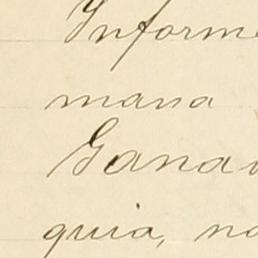 Informe
mana
Gana
quia, no